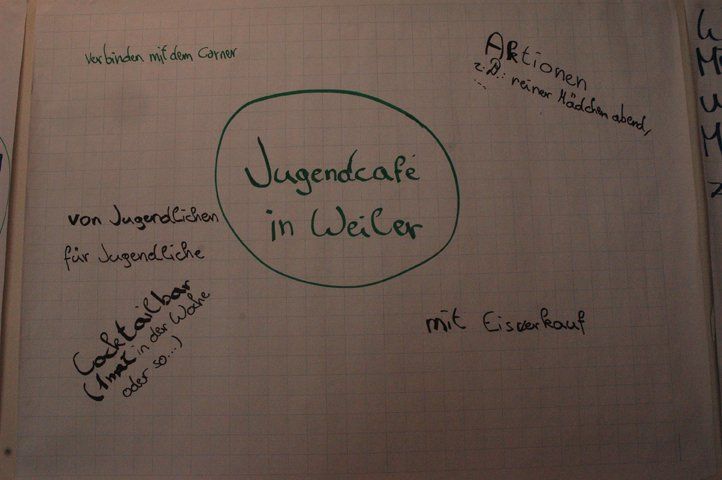 verbinden mit dem Corner
Aktionen
z.B.: reiner Mädchenabend,
...
Jugendcafé
in Weiler
von Jugendlichen
für Jugendliche
Cocktailbar
(1mal in der Woche
oder so...)
mit Eisverkauf